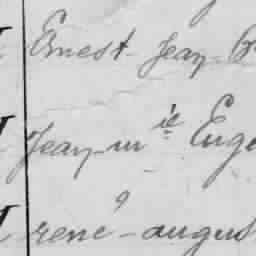 Ernest Jean B
Jean-m ie Euge
rené-augus